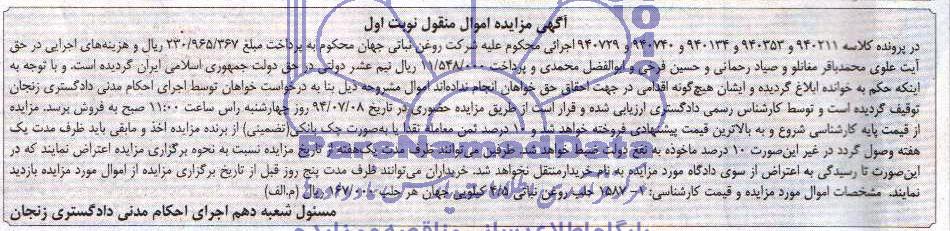 آگهی مزایده اموال منقول نوبت اول
در پرونده کلاسه ۹۴۰۲۱۱ و ۹۴۰۳۵۳ و ۹۴۰۱۳۴ و ۹۴۰۷۴۰ و ۹۴۰۷۲۹ اجرائی محکوم علیه شرکت روغن نباتی جهان محکوم به پرداخت مبلغ ۲۳۰/۹۶۵/۳۶۷ ریال و هزینه‌های اجرایی در حق
آیت علوی محمدباقر مغانلو و صیاد رحمانی و حسین فرخی و ابوالفضل محمدی و پرداخت ۱۱/۵۴۸/۰۰۰ ریال نیم عشر دولتی در حق دولت جمهوری اسلامی ایران گردیده است. و با توجه به
اینکه حکم به خوانده ابلاغ گردیده و ایشان هیچ‌گونه اقدامی در جهت احقاق حق خواهان انجام نداده‌اند اموال مشروحه ذیل بنا به درخواست خواهان توسط اجرای احکام مدنی دادگستری زنجان
توقیف گردیده است و توسط کارشناس رسمی دادگستری ارزیابی شده و قرار است از طریق مزایده حضوری در تاریخ ۹۴/۰۷/۰۸ روز چهارشنبه راس ساعت ۱۱:۰۰ صبح به فروش برسد. مزایده
از قیمت پایه کارشناسی شروع و به بالاترین قیمت پیشنهادی فروخته خواهد شد و ۱۰ درصد ثمن معامله نقدا یا به‌صورت چک بانکی(تضمینی) از برنده مزایده اخذ و مابقی باید ظرف مدت یک
هفته وصول گردد در غیر این‌صورت ۱۰ درصد ماخوذه به نفع دولت ضبط خواهد شد. طرفین می‌توانند ظرف مدت یک‌هفته از تاریخ مزایده نسبت به نحوه برگزاری مزایده اعتراض نمایند که در
این‌صورت تا رسیدگی به اعتراض از سوی دادگاه مورد مزایده به نام خریدار منتقل نخواهد شد. خریداران می‌توانند ظرف مدت پنج روز قبل از تاریخ برگزاری مزایده از اموال مورد مزایده بازدید
نمایند. مشخصات اموال مورد مزایده و قیمت کارشناسی: ۱- ۱۵۸۷ حلب روغن نباتی ۴/۵ کیلویی جهان هر حلب ۱۶۷/۰۰۰ ریال (م.الف)
مسئول شعبه دهم اجرای احکام مدنی دادگستری زنجان
ParsNamadData
پایگاه اطلاع رسانی مناقصه و مزایده